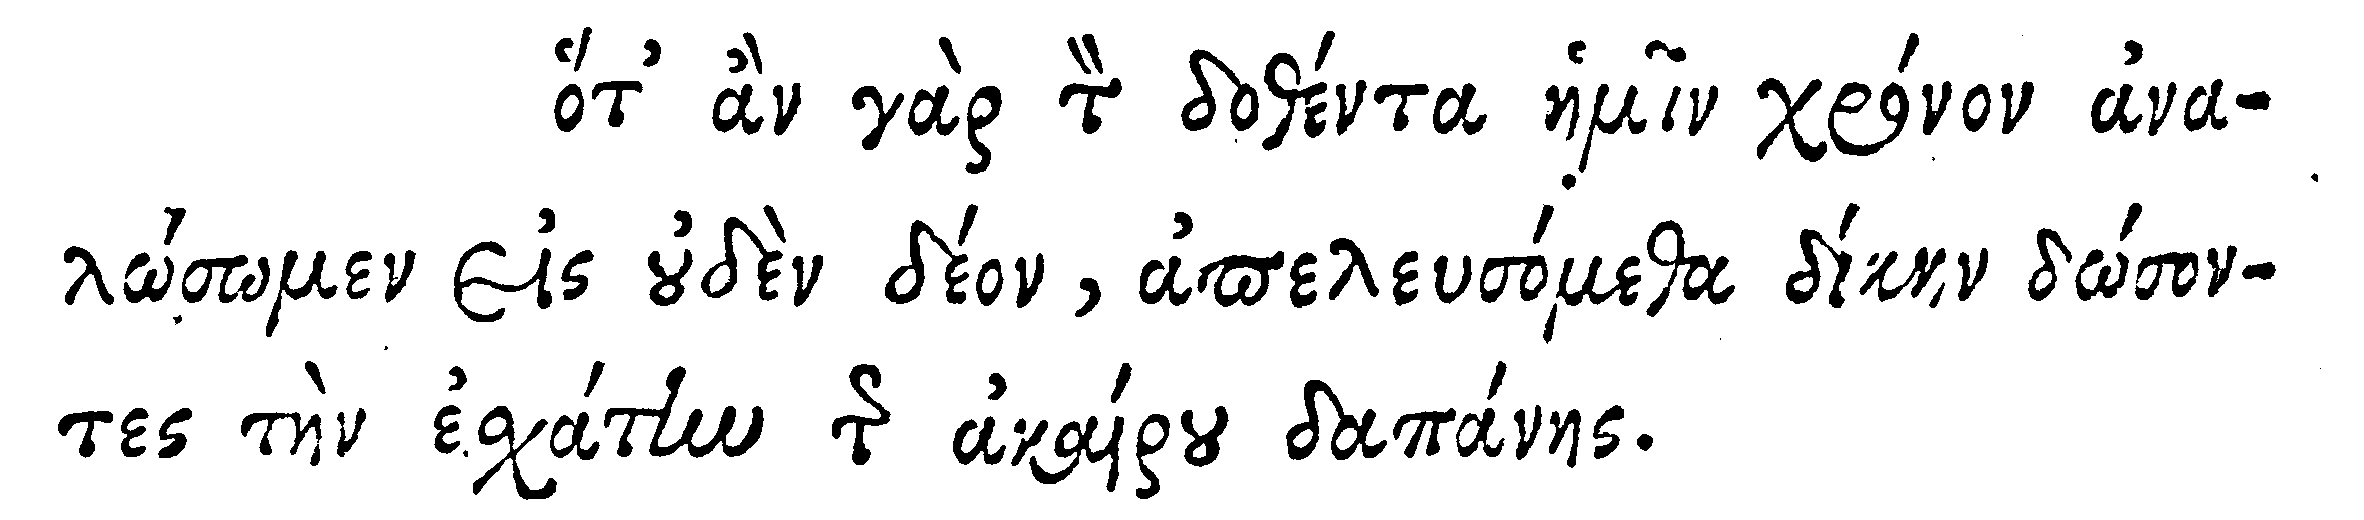 ὅτ᾽ ἂν γὰρ τὸν δοθέντα ἡμῖν χρόνον ἀνα-
λώσωμεν εἰς οὐδὲν δέον, ἀπελευσόμεθα δίκην δώσον-
τες τὴν ἐσχάτην τῆς ἀκαίρου δαπάνης.